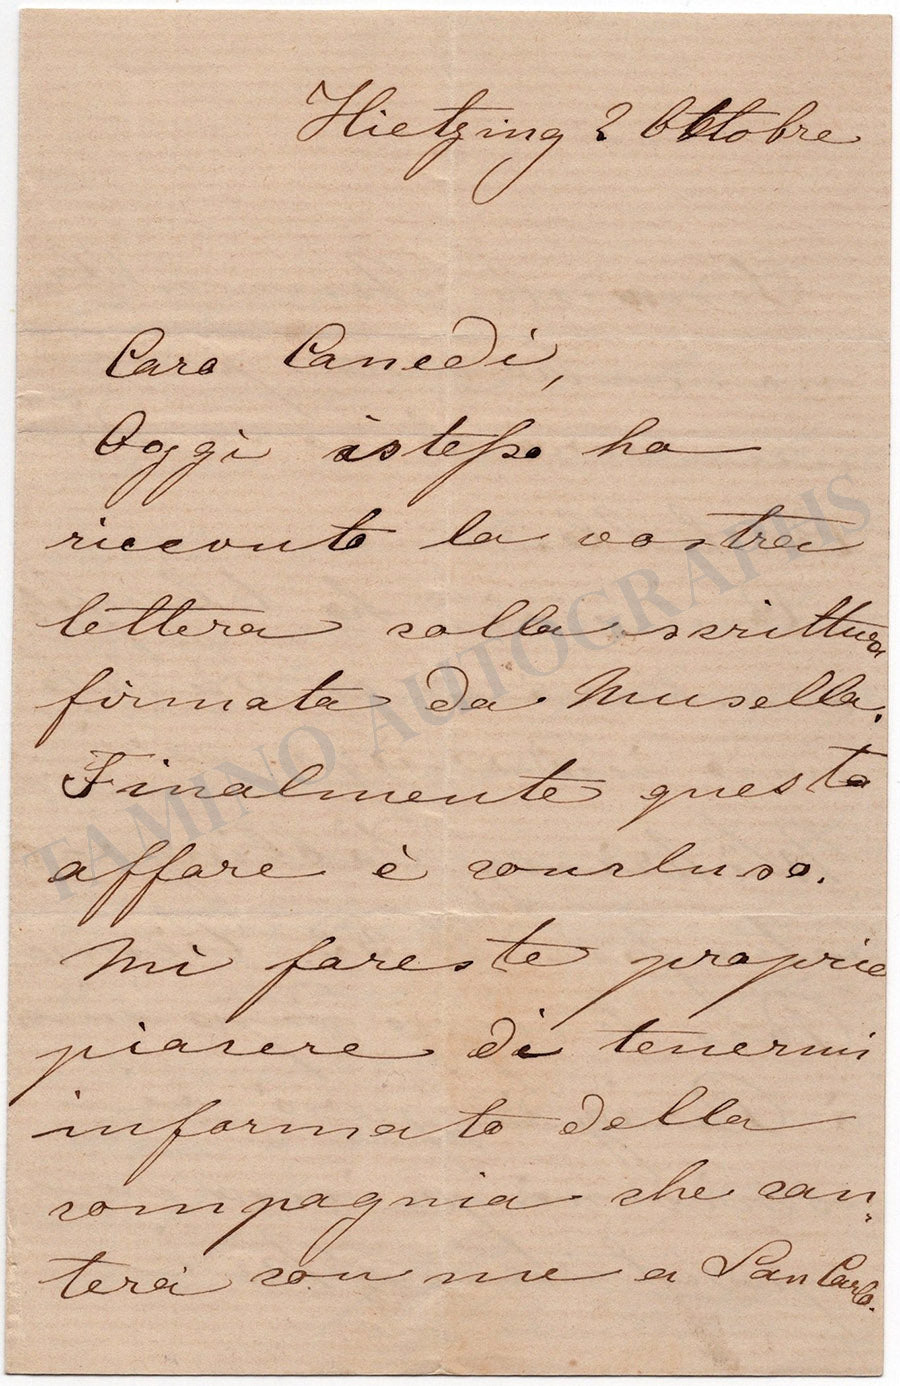 Hietzing 2 Ottobre
Caro Canedi,
Oggi istesso ho
riccevuto la vostra
lettera colla scrittura
firmata da Musella.
Finalmente questo
affare è concluso.
Mi fareste proprio
piacere di tenermi
informato della
compagnia che can-
terà con me a San Carlo.
TAMINO AUTOGRAPHS